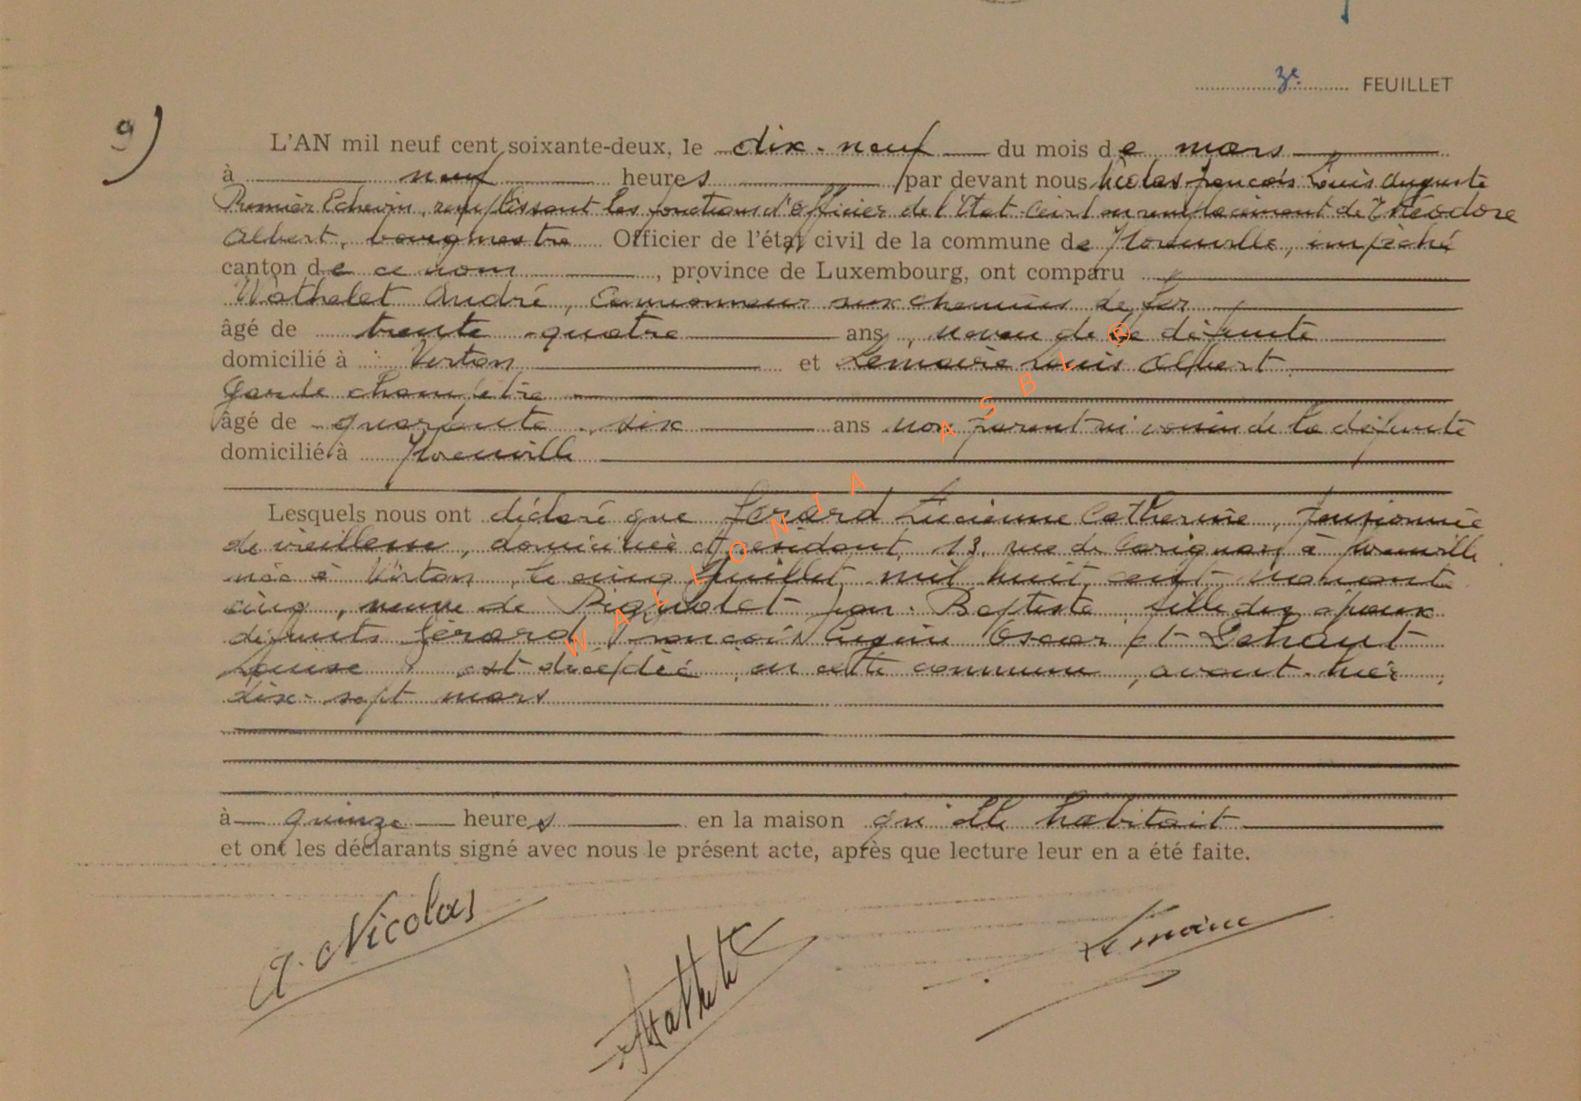 3e. FEUILLET
9)
L'AN mil neuf cent soixante-deux, le dix-neuf du mois de mars
à neuf heures par devant nous Nicolas François Louis Auguste
Premier Echevin, remplissant les fonctions d'Officier de l'Etat-Civil en remplacement de Théodore
Albert, bourgmestre Officier de l'état civil de la commune de Florenville, empêché
canton de ce nom, province de Luxembourg, ont comparu
Wathelet André, Camionneur aux chemins de fer
âgé de trente-quatre ans, neveu de la défunte
domicilié à Virton et Lemaire Louis Albert
Garde champêtre
âgé de quarante-dix ans non parent ni voisin de la défunte
domicilié à Florenville
Lesquels nous ont déclaré que Gérard Lucienne Catherine, pensionnée
de vieillesse, domiciliée et résidant, 13, rue de Carignan, à Florenville
née à Virton, le cinq Juillet mil huit cent nonante
cinq, veuve de Pignolet Jean-Baptiste fille des époux
défunts Gérard, François Eugène Oscar et Lehaut
Louise, est décédée, en cette commune, avant-hier
dix-sept mars
à quinze heures en la maison qu'elle habitait
et ont les déclarants signé avec nous le présent acte, après que lecture leur en a été faite.
A. Nicolas
Wathelet
Lemaire
WALLONIA ASBL ©